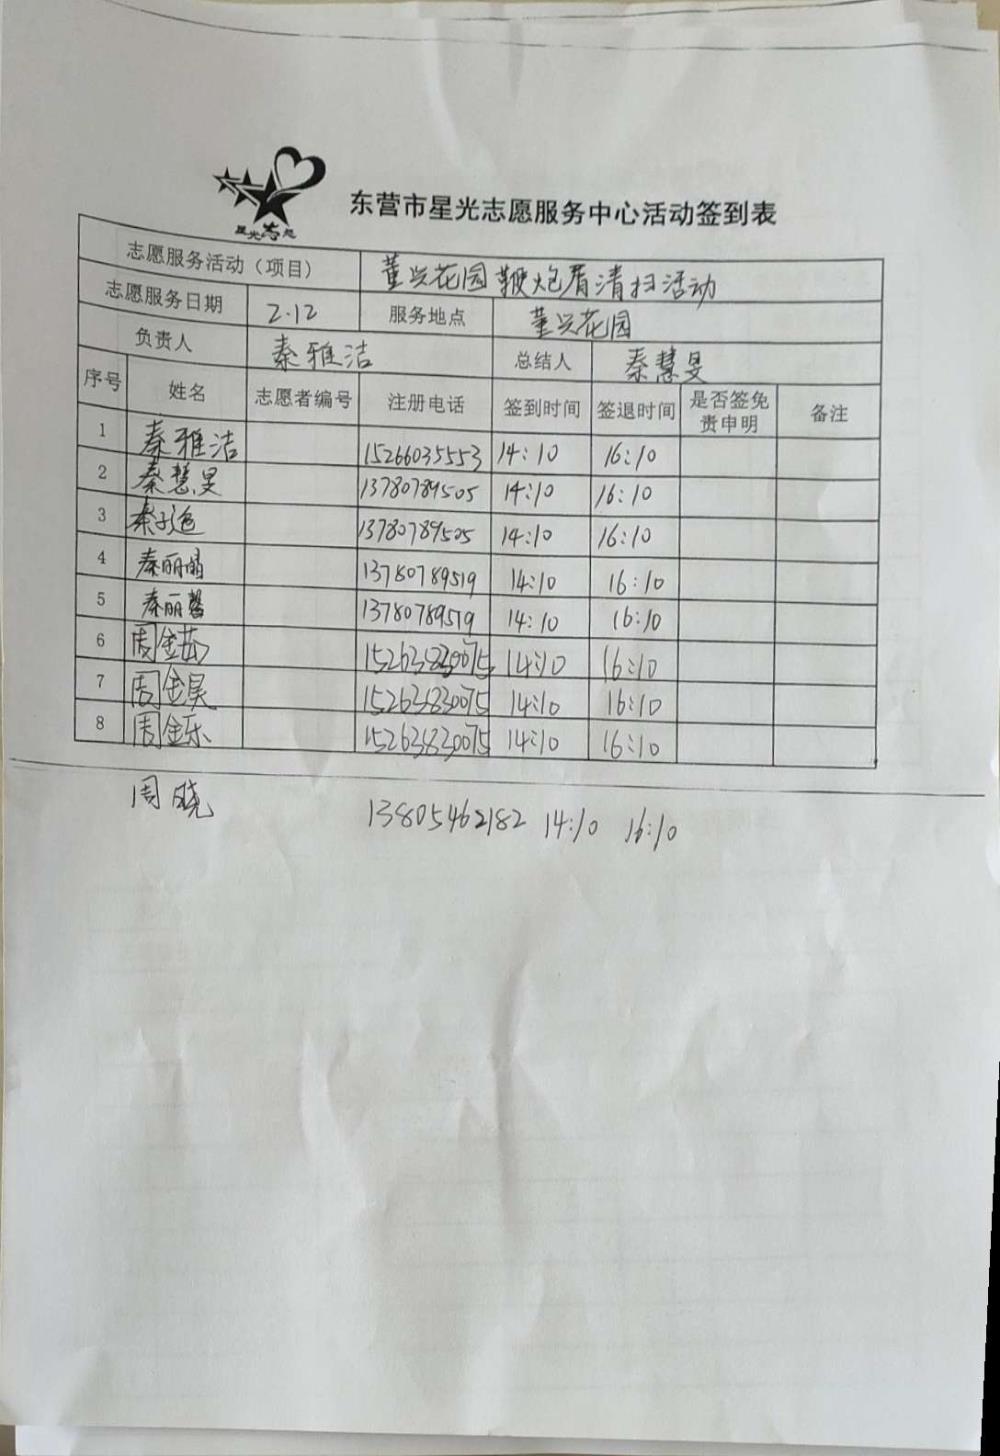 星光志愿
东营市星光志愿服务中心活动签到表
志愿服务活动（项目） 董兴花园鞭炮屑清扫活动
志愿服务日期 2.12 服务地点 董兴花园
负责人 秦雅洁 总结人 秦慧旻
序号 姓名 志愿者编号 注册电话 签到时间 签退时间 是否签免责申明 备注
1 秦雅洁 15266035553 14:10 16:10
2 秦慧旻 13780789505 14:10 16:10
3 秦子逸 13780789505 14:10 16:10
4 秦丽晶 13780789519 14:10 16:10
5 秦丽馨 13780789519 14:10 16:10
6 周金茹 15263830075 14:10 16:10
7 周金昊 15263830075 14:10 16:10
8 周金乐 15263830075 14:10 16:10
周晓 13805462182 14:10 16:10